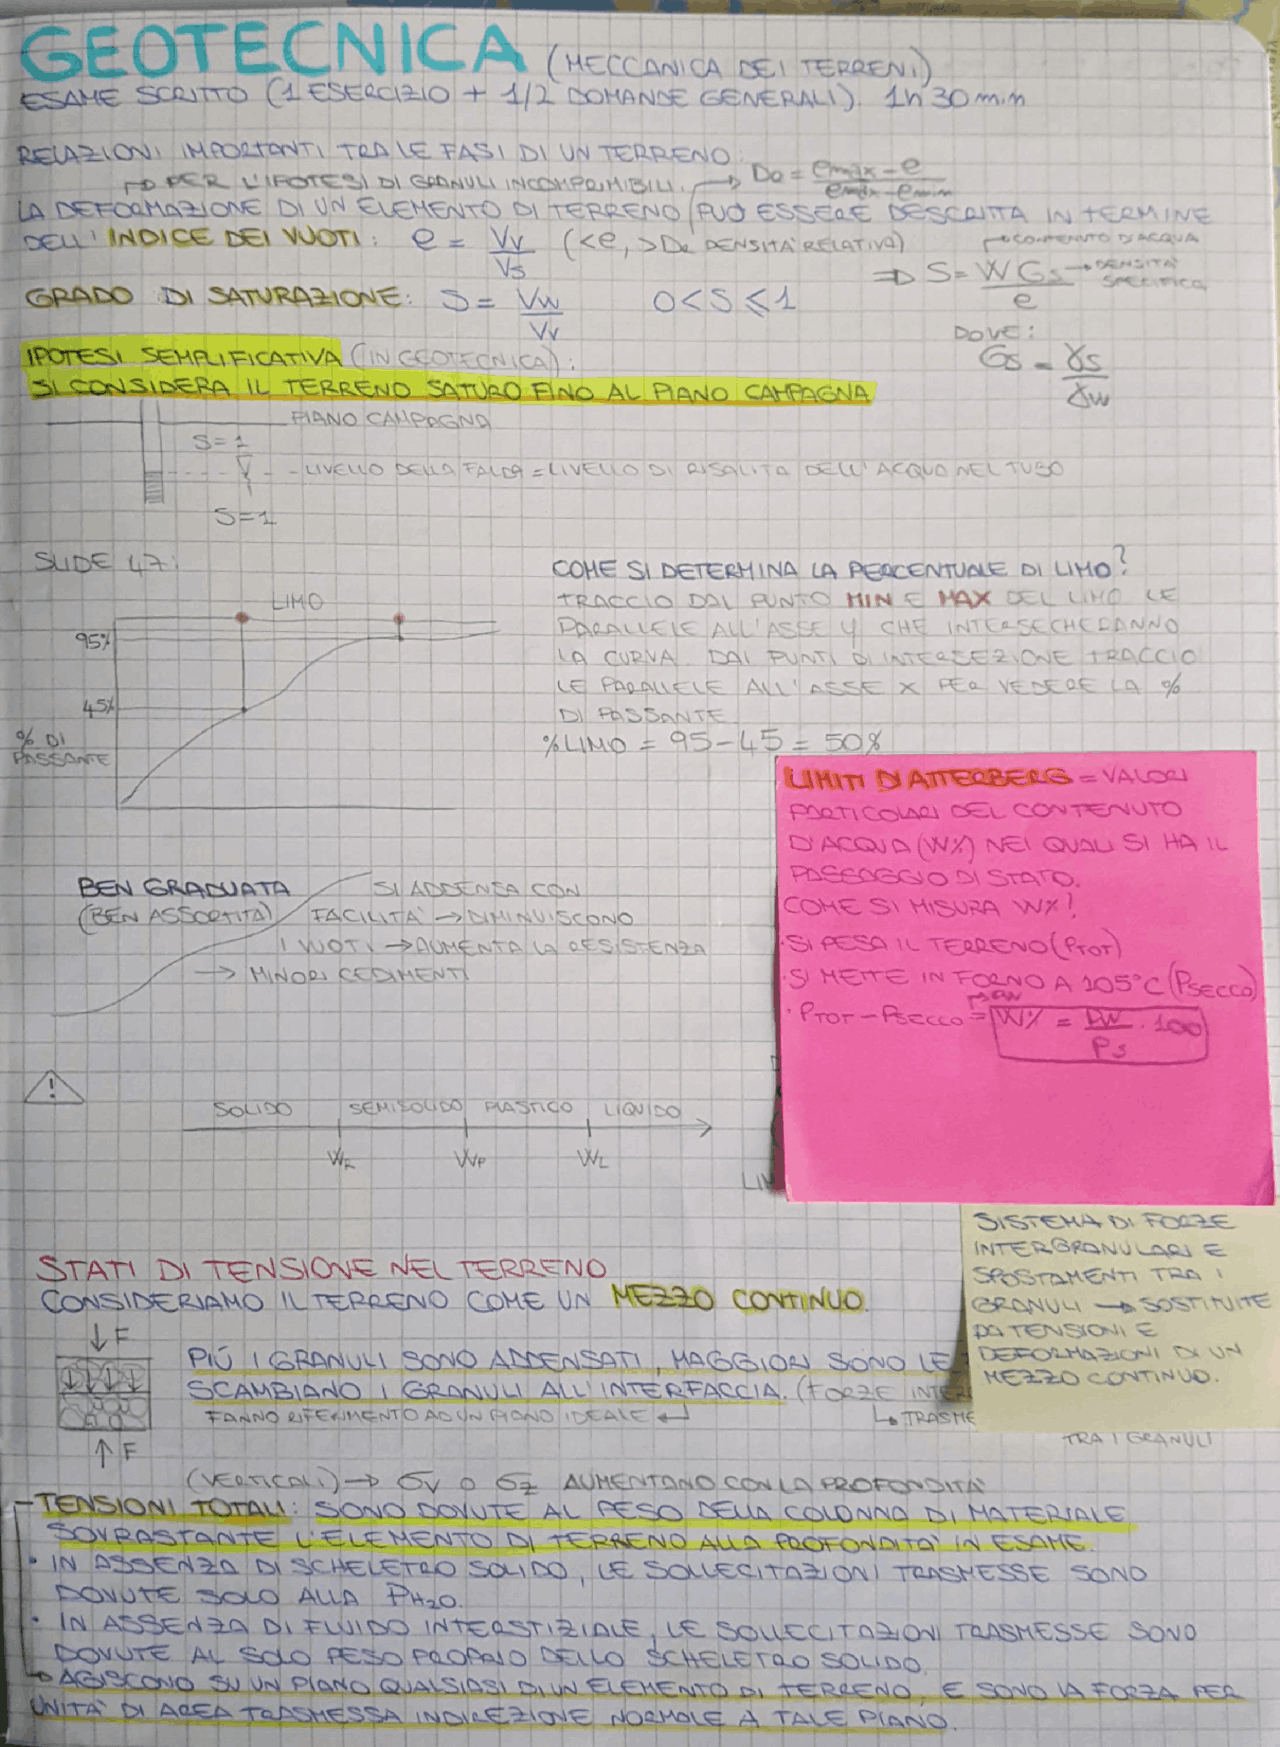 GEOTECNICA (MECCANICA DEI TERRENI)
ESAME SCRITTO (1 ESERCIZIO + 1/2 DOMANDE GENERALI). 1h 30 min
RELAZIONI IMPORTANTI TRA LE FASI DI UN TERRENO:
→ PER L'IPOTESI DI GRANULI INCOMPRIMIBILI. → DR = emax - e / emax - emin
LA DEFORMAZIONE DI UN ELEMENTO DI TERRENO PUÒ ESSERE DESCRITTA IN TERMINE
DELL'INDICE DEI VUOTI: e = Vv / Vs (<e, >DR DENSITA' RELATIVA)
→ CONTENUTO D'ACQUA
⇒ S = W Gs / e → DENSITÀ SPECIFICA
GRADO DI SATURAZIONE: S = Vw / Vv 0 < S ≤ 1
DOVE:
Gs = γs / γw
IPOTESI SEMPLIFICATIVA (IN GEOTECNICA):
SI CONSIDERA IL TERRENO SATURO FINO AL PIANO CAMPAGNA
PIANO CAMPAGNA
S=1
LIVELLO DELLA FALDA = LIVELLO DI RISALITA DELL'ACQUA NEL TUBO
S=1
SLIDE 47:
LIMO
95%
45%
% DI
PASSANTE
COME SI DETERMINA LA PERCENTUALE DI LIMO?
TRACCIO DAL PUNTO MIN E MAX DEL LIMO LE
PARALLELE ALL'ASSE Y CHE INTERSECHERANNO
LA CURVA. DAI PUNTI DI INTERSEZIONE TRACCIO
LE PARALLELE ALL'ASSE X PER VEDERE LA %
DI PASSANTE
% LIMO = 95 - 45 = 50%
LIMITI DI ATTERBERG = VALORI
PARTICOLARI DEL CONTENUTO
D'ACQUA (W%) NEI QUALI SI HA IL
PASSAGGIO DI STATO.
COME SI MISURA W%?
· SI PESA IL TERRENO (PTOT)
· SI METTE IN FORNO A 105°C (PSECCO)
· PTOT - PSECCO = PW → W% = PW / Ps · 100
BEN GRADUATA
(BEN ASSORTITA)
SI ADDENSA CON
FACILITA' → DIMINUISCONO
I VUOTI → AUMENTA LA RESISTENZA
→ MINORI CEDIMENTI
!
SOLIDO SEMISOLIDO PLASTICO LIQUIDO
WR WP WL
LIM
SISTEMA DI FORZE
INTERGRANULARI E
SPOSTAMENTI TRA I
GRANULI → SOSTITUITE
DA TENSIONI E
DEFORMAZIONI DI UN
MEZZO CONTINUO.
STATI DI TENSIONE NEL TERRENO
CONSIDERIAMO IL TERRENO COME UN MEZZO CONTINUO.
↓F
PIÙ I GRANULI SONO ADDENSATI, MAGGIORI SONO LE
SCAMBIANO I GRANULI ALL'INTERFACCIA. (FORZE INTER
FANNO RIFERIMENTO AD UN PIANO IDEALE ↵ ↳ TRASME
TRA I GRANULI
↑F
(VERTICALI) → σv O σz AUMENTANO CON LA PROFONDITA'
- TENSIONI TOTALI: SONO DOVUTE AL PESO DELLA COLONNA DI MATERIALE
SOVRASTANTE L'ELEMENTO DI TERRENO ALLA PROFONDITA' IN ESAME.
· IN ASSENZA DI SCHELETRO SOLIDO, LE SOLLECITAZIONI TRASMESSE SONO
DOVUTE SOLO ALLA PH2O.
· IN ASSENZA DI FLUIDO INTERSTIZIALE, LE SOLLECITAZIONI TRASMESSE SONO
DOVUTE AL SOLO PESO PROPRIO DELLO SCHELETRO SOLIDO.
→ AGISCONO SU UN PIANO QUALSIASI DI UN ELEMENTO DI TERRENO, E SONO LA FORZA PER
UNITA' DI AREA TRASMESSA IN DIREZIONE NORMALE A TALE PIANO.